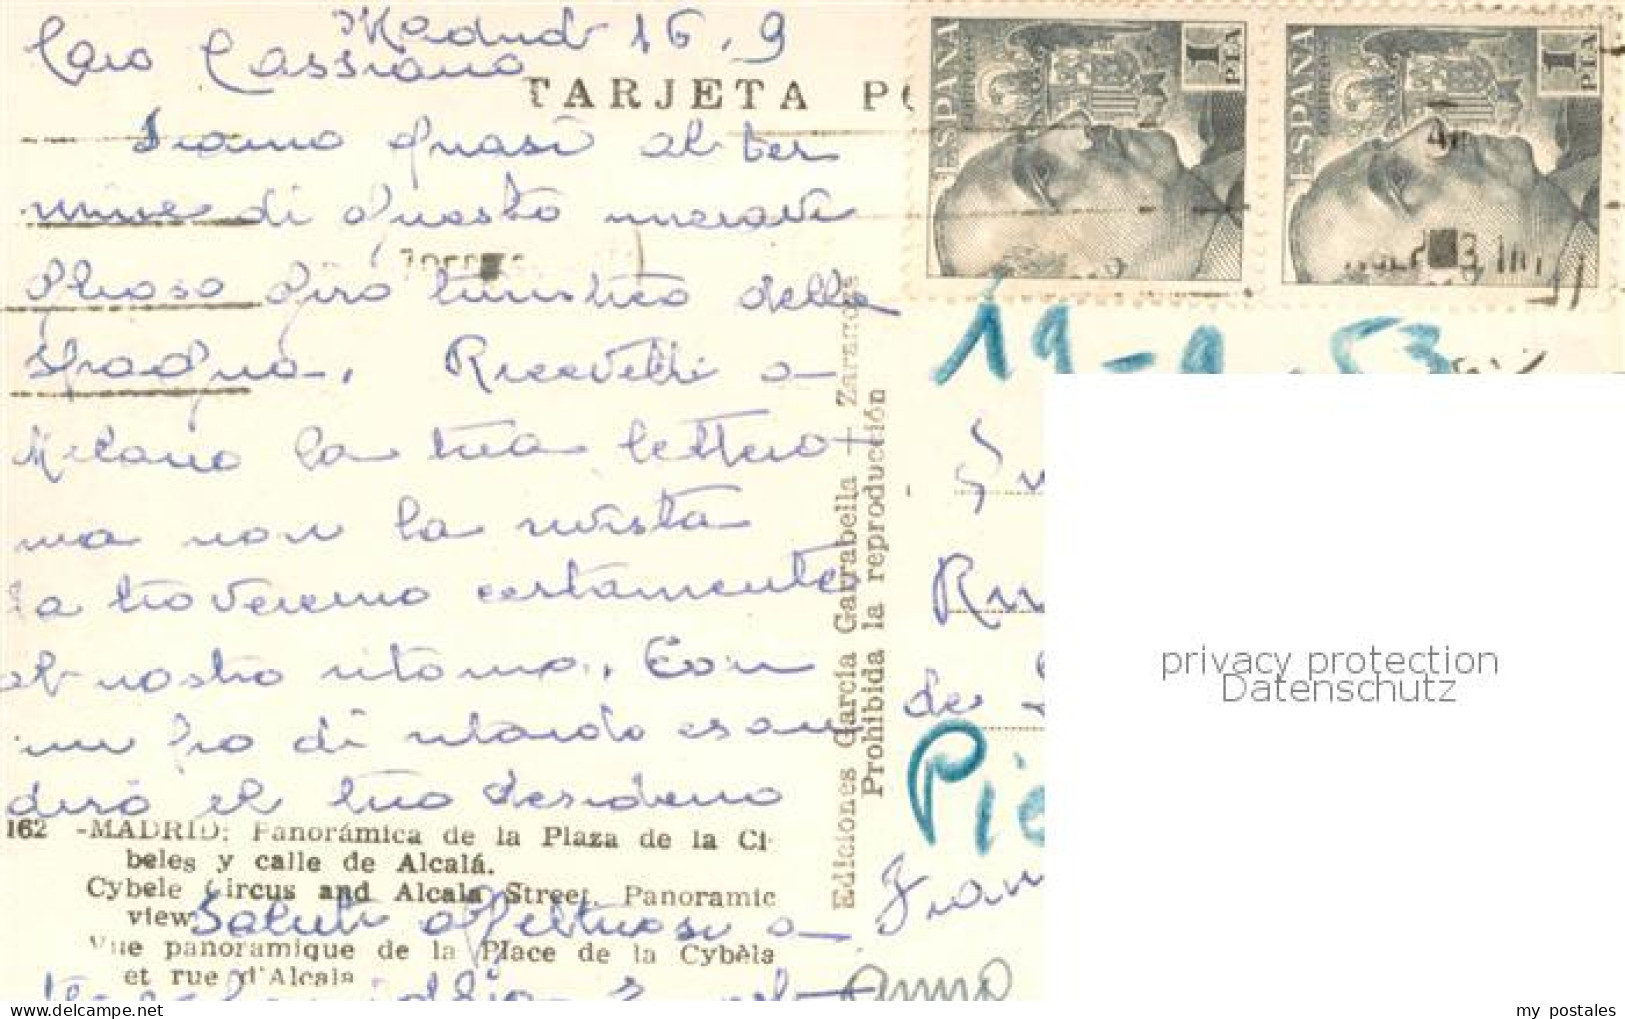 Madrid 16.9
Caro Cassiano
TARJETA PO
Siamo quasi al ter
mine di questo meravi
glioso giro turistico della
Spagna. Ricevetti a
Milano la tua lettera
ma non la rivista
la troveremo certamente
al nostro ritorno. Con
un po di ritardo esau
dirò il tuo desiderio
162 -MADRID: Panorámica de la Plaza de la Ci-
beles y calle de Alcalá.
Cybele Circus and Alcala Street. Panoramic
view
Saluti affettuosi a
Vue panoramique de la Place de la Cybèle
et rue d'Alcala
Ediciones García Garrabella - Zaragoza
Prohibida la reproducción
ESPAÑA
CORREOS
1
PTA
ESPAÑA
CORREOS
1
PTA
19-9-53
Ru
de
Pie
Fran
anno
privacy protection
Datenschutz
my postales